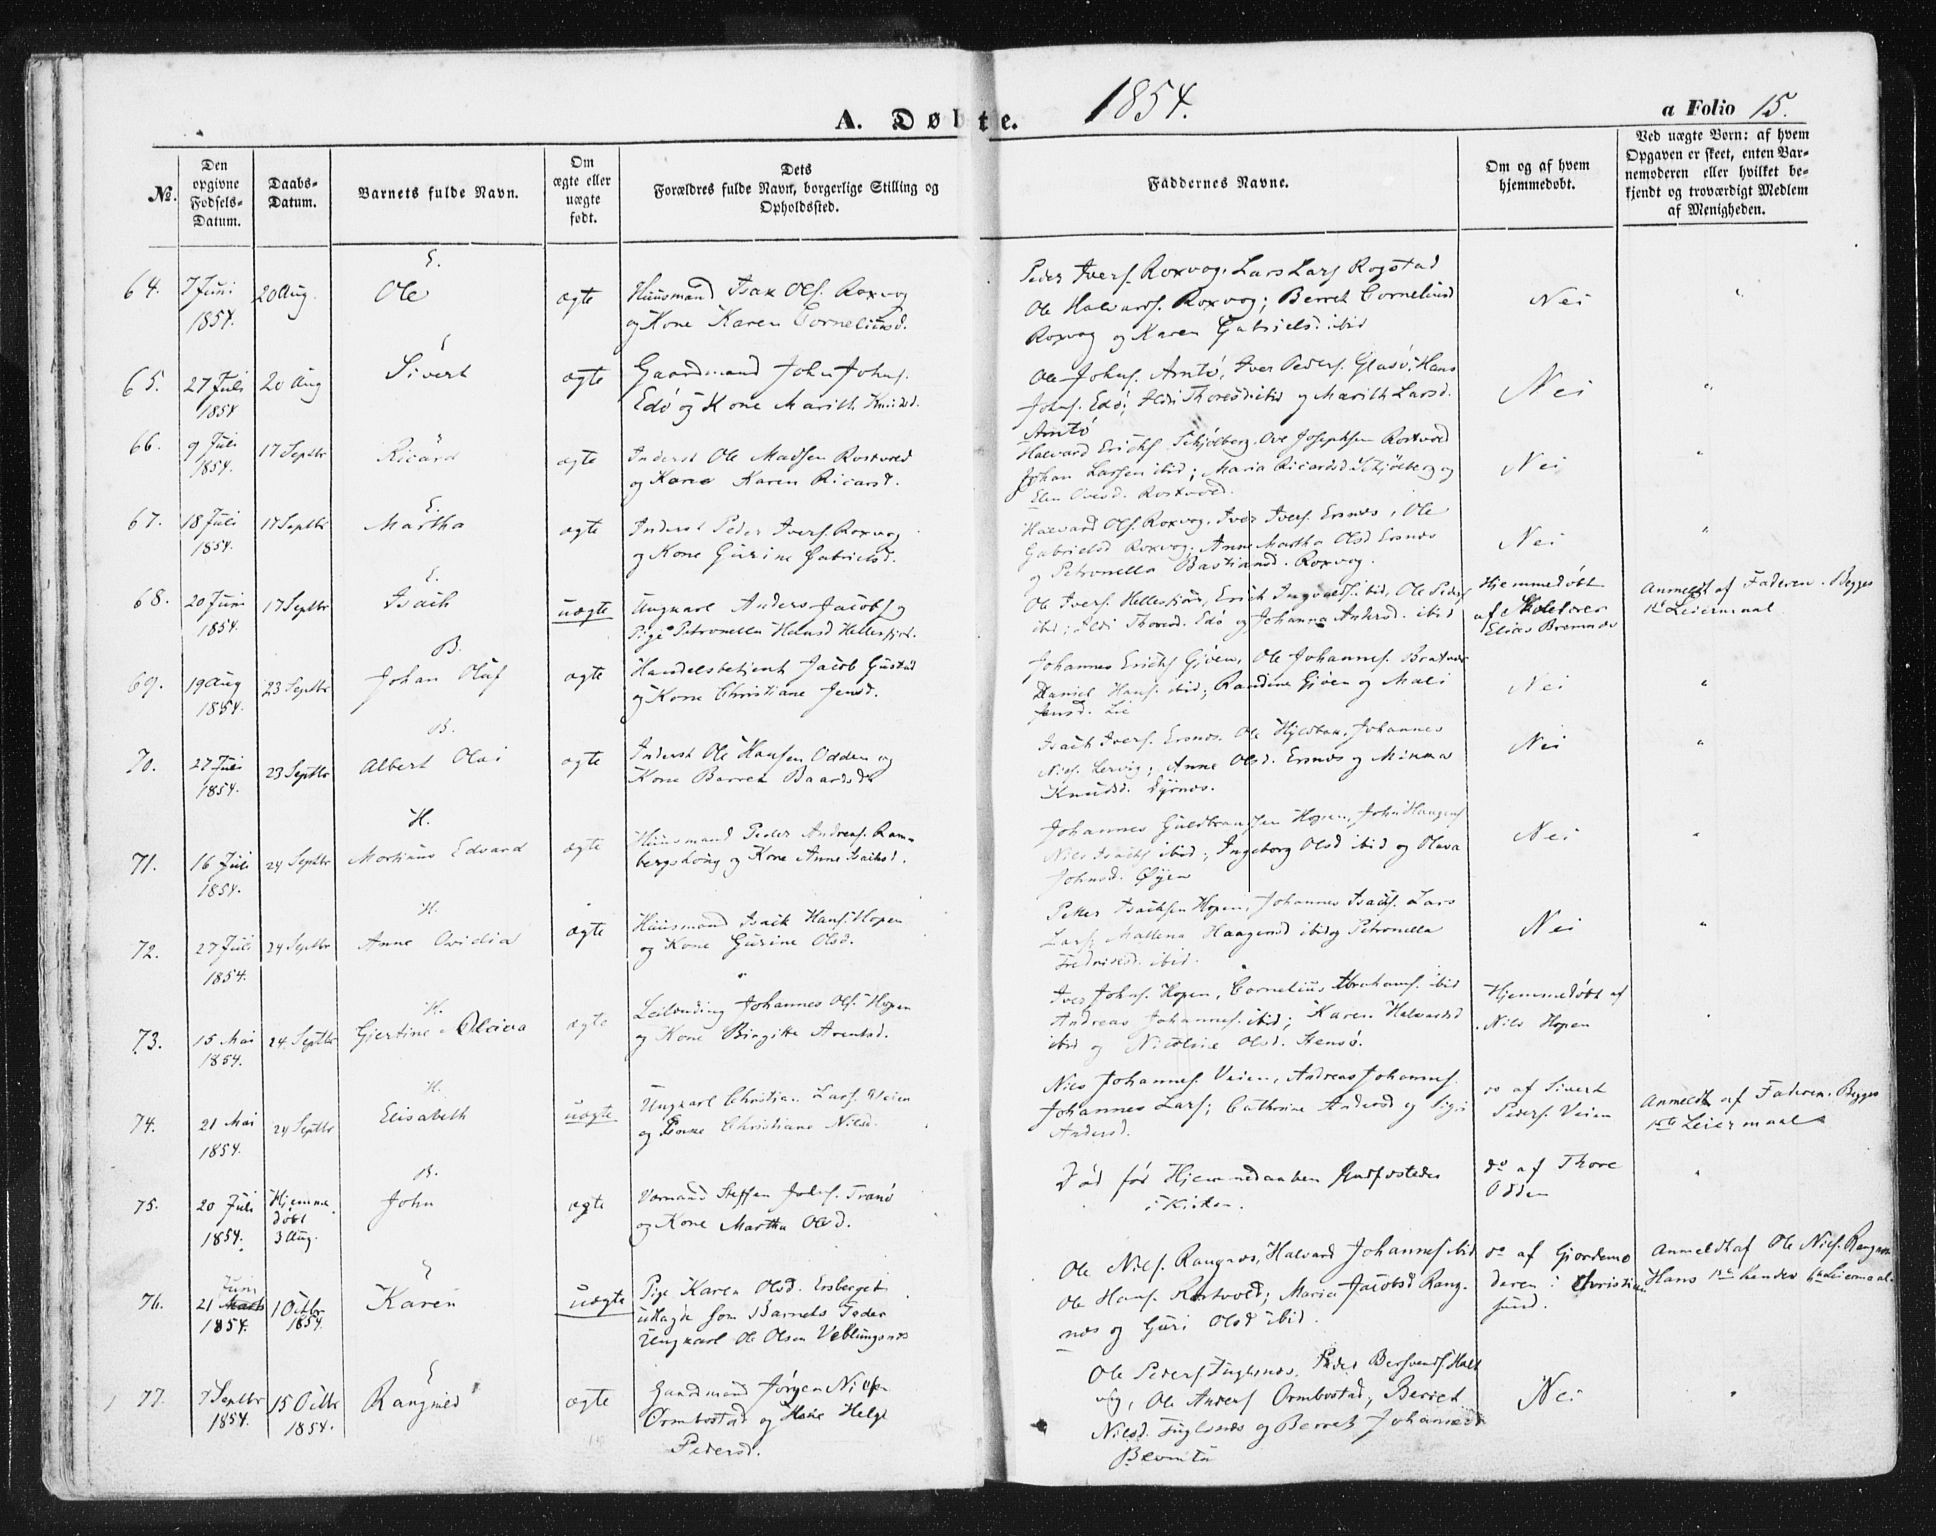 A. Døbte.
1854.
a Folio 15.
No.
Den opgivne Fødsels-Datum.
Daabs-Datum.
Barnets fulde Navn.
Om ægte eller uægte født.
Dets Forældres fulde Navn, borgerlige Stilling og Opholdssted.
Faddernes Navne.
Om og af hvem hjemmedøbt.
Ved uægte Børn: af hvem Opgaven er skeet, enten Barnemoderen eller hvilket bekjendt og troværdigt Medlem af Menigheden.
E.
64. 7 Juni 1854. 20 Aug. Ole ægte
Huusmand Isak Ols. Roxvog
og Kone Karen Corneliusd.
Peder Ivers. Roxvog, Lars Lars Rogstad
Ole Halvards. Roxvog; Berret Corneliusd
Roxvog og Karen Gabrielsd. ibid
Nei "
E
65. 27 Juli 1854 20 Aug Sivert ægte
Gaardmand John Johns.
Edø og Kone Marith Knudsd.
Ole Johns. Arntø, Iver Peders. Glasø, Hans
Johns. Edø; Ildri Thoresd ibid og Marith Larsd.
Arntø
Nei "
66. 9 Juli 1854. 17 Septbr Ricard ægte
Inderst Ole Madsen Rostvold
og Kone Karen Ricarsd.
Halvard Erichs. Schjølberg, Ove Josephsen Rostvold
Johan Larsen ibid; Maria Ricardsd Schjølberg og
Elen Ovesd. Rostvold.
Nei "
E.
67. 18 Juli 1854. 17 Septbr Martha ægte
Inderst Peder Ivers. Roxvog
og Kone Gurine Gabrielsd.
Halvard Ols. Roxvog, Iver Ivers. Ersnes, Ole
Gabrielsd Roxvog; Anne Martha Olsd Ersnes
og Petronella Bastiansd. Roxvog.
Nei "
E.
68. 20 Juni 1854. 17 Septbr Isach uægte
Ungkarl Anders Jacobs og
Pige Petronella Hansd Hellesfjord.
Ole Ivers. Hellesfjord, Erich Ingvalds. ibid, Ole Peders
ibid; Ildri Thoresd. Edø og Johanna Andersd. ibid
Hjemmedøbt
af Skolelærer
Elias Bremnes
Anmeldt af Faderen. Begges
1st Leiermaal
B.
69. 19 Aug 1854. 23 Septbr Johan Oluf ægte
Handelsbetjent Jacob Gustad
og Kone Christiane Jensd.
Johannes Erichs Gjøen, Ole Johannes. Bratvær
Daniel Hans. ibid; Randine Gjøen og Mali
Jensd. Lie
Nei "
B.
70. 27 Juli 1854. 23 Septbr Albert Olai ægte
Inderst Ole Hansen Odden og
Kone Berret Baardsdr
Isach Ivers. Ersnes, Ole Hjeldbak, Johannes
Niels. Lervig; Anne Olsd. Ersnes og Minna
Knudsd. Dyrnes.
Nei "
H.
71. 16 Juli 1854. 24 Septbr Martinus Edvard ægte
Huusmand Peder Andreas. Ram-
bergshoug og Kone Anne Isachsd.
Johannes Guldbransen Hopen, John Haagens
Nils Isachs ibid; Ingeborg Olsd ibid og Olava
Johnsd. Øyen
Nei "
H.
72. 27 Juli 1854. 24 Septbr Anne Ovidia ægte
Huusmand Isack Hans. Hopen
og Kone Gurine Olsd.
Petter Isachsen Hopen, Johannes Isachs. Lars
Lars; Mallena Haagensd ibid og Petronella
Fredriksd. ibid.
Nei "
H.
73. 15 Mai 1854. 24 Septbr Gjertine Oleiva ægte
Leilending Johannes Ols. Hopen
og Kone Birgitte Arentsd.
Iver Johns. Hopen, Cornelius Abrahams. ibid
Andreas Johannes. ibid; Karen Halvardsd
ibid og Nicoline Olsd. Hensø.
Hjemmedøbt af
Nils Hopen
H.
74. 21 Mai 1854. 24 Septbr Elisabeth uægte
Ungkarl Christian Lars. Veien
og Pige Christiane Nilsd.
Nils Johannes. Veien, Andreas Johannes.
Johannes Lars; Cathrine Andersd og Sigri
Andersd.
do af Sivert
Peders. Veien
Anmeldt af Faderen. Begges
1ste Leiermaal
B.
75. 20 Juli 1854. Hjemmedøbt 3 Aug. John ægte
Vornand Steffen Johns. Tranø
og Kone Martha Olsd.
Død før Hjemmedaaben stadfæstedes
i Kirken.
do af Thore
Odden
"
E
76. 21 Juni 1854. 1 Octbr 1854. Karen uægte
Pige Karen Olsd. Ersberget
udlagde som Barnets Fader
Ungkarl Ole Olsen Veblungsnes
Ole Nils. Rangnes, Halvard Johannes ibid
Ole Hans. Rostvold; Maria Jacobsd Rang-
nes og Guri Olsd ibid.
do af Gjordemo
deren i Christian
sund.
Anmeldt af Ole Nils. Rangnes
Hans 1ste hendes 6te Leiermaal.
E
77. 7 Septbr 1854. 15 Octbr 1854. Rangnild ægte
Gaardmand Jørgen Nilsen
Ormbostad og Kone Helge
Pedersd.
Ole Peders Fuglsnes, Peder Bersvends. Halt
vig, Ole Anders Ormbostad, Beriet
Nilsd. Fuglsnes og Berret Johannesd
Bevmtø
Nei "